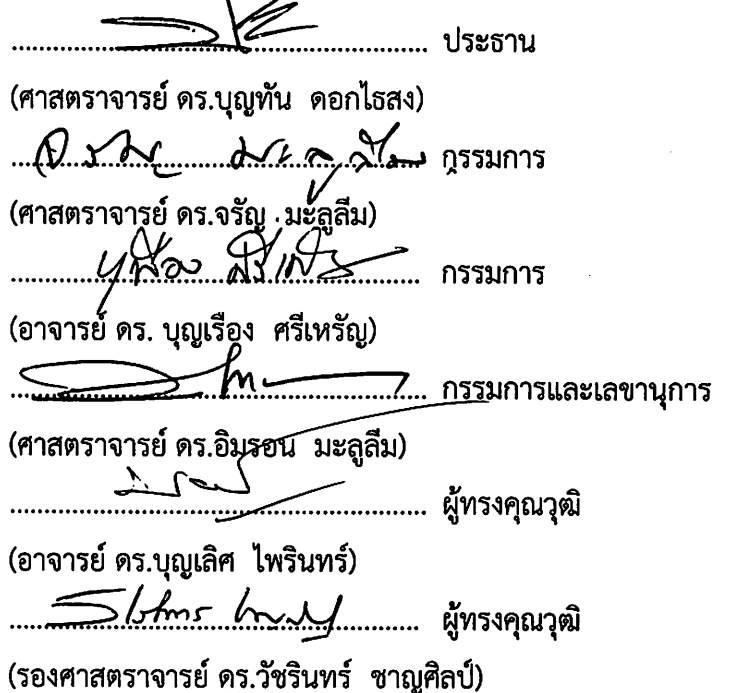 ประธาน
(ศาสตราจารย์ ดร.บุญทัน ดอกไธสง)
จรัญ มะลูลีม กรรมการ
(ศาสตราจารย์ ดร.จรัญ มะลูลีม)
กรรมการ
(อาจารย์ ดร. บุญเรือง ศรีเหรัญ)
กรรมการและเลขานุการ
(ศาสตราจารย์ ดร.อิมรอน มะลูลีม)
ผู้ทรงคุณวุฒิ
(อาจารย์ ดร.บุญเลิศ ไพรินทร์)
ผู้ทรงคุณวุฒิ
(รองศาสตราจารย์ ดร.วัชรินทร์ ชาญศิลป์)